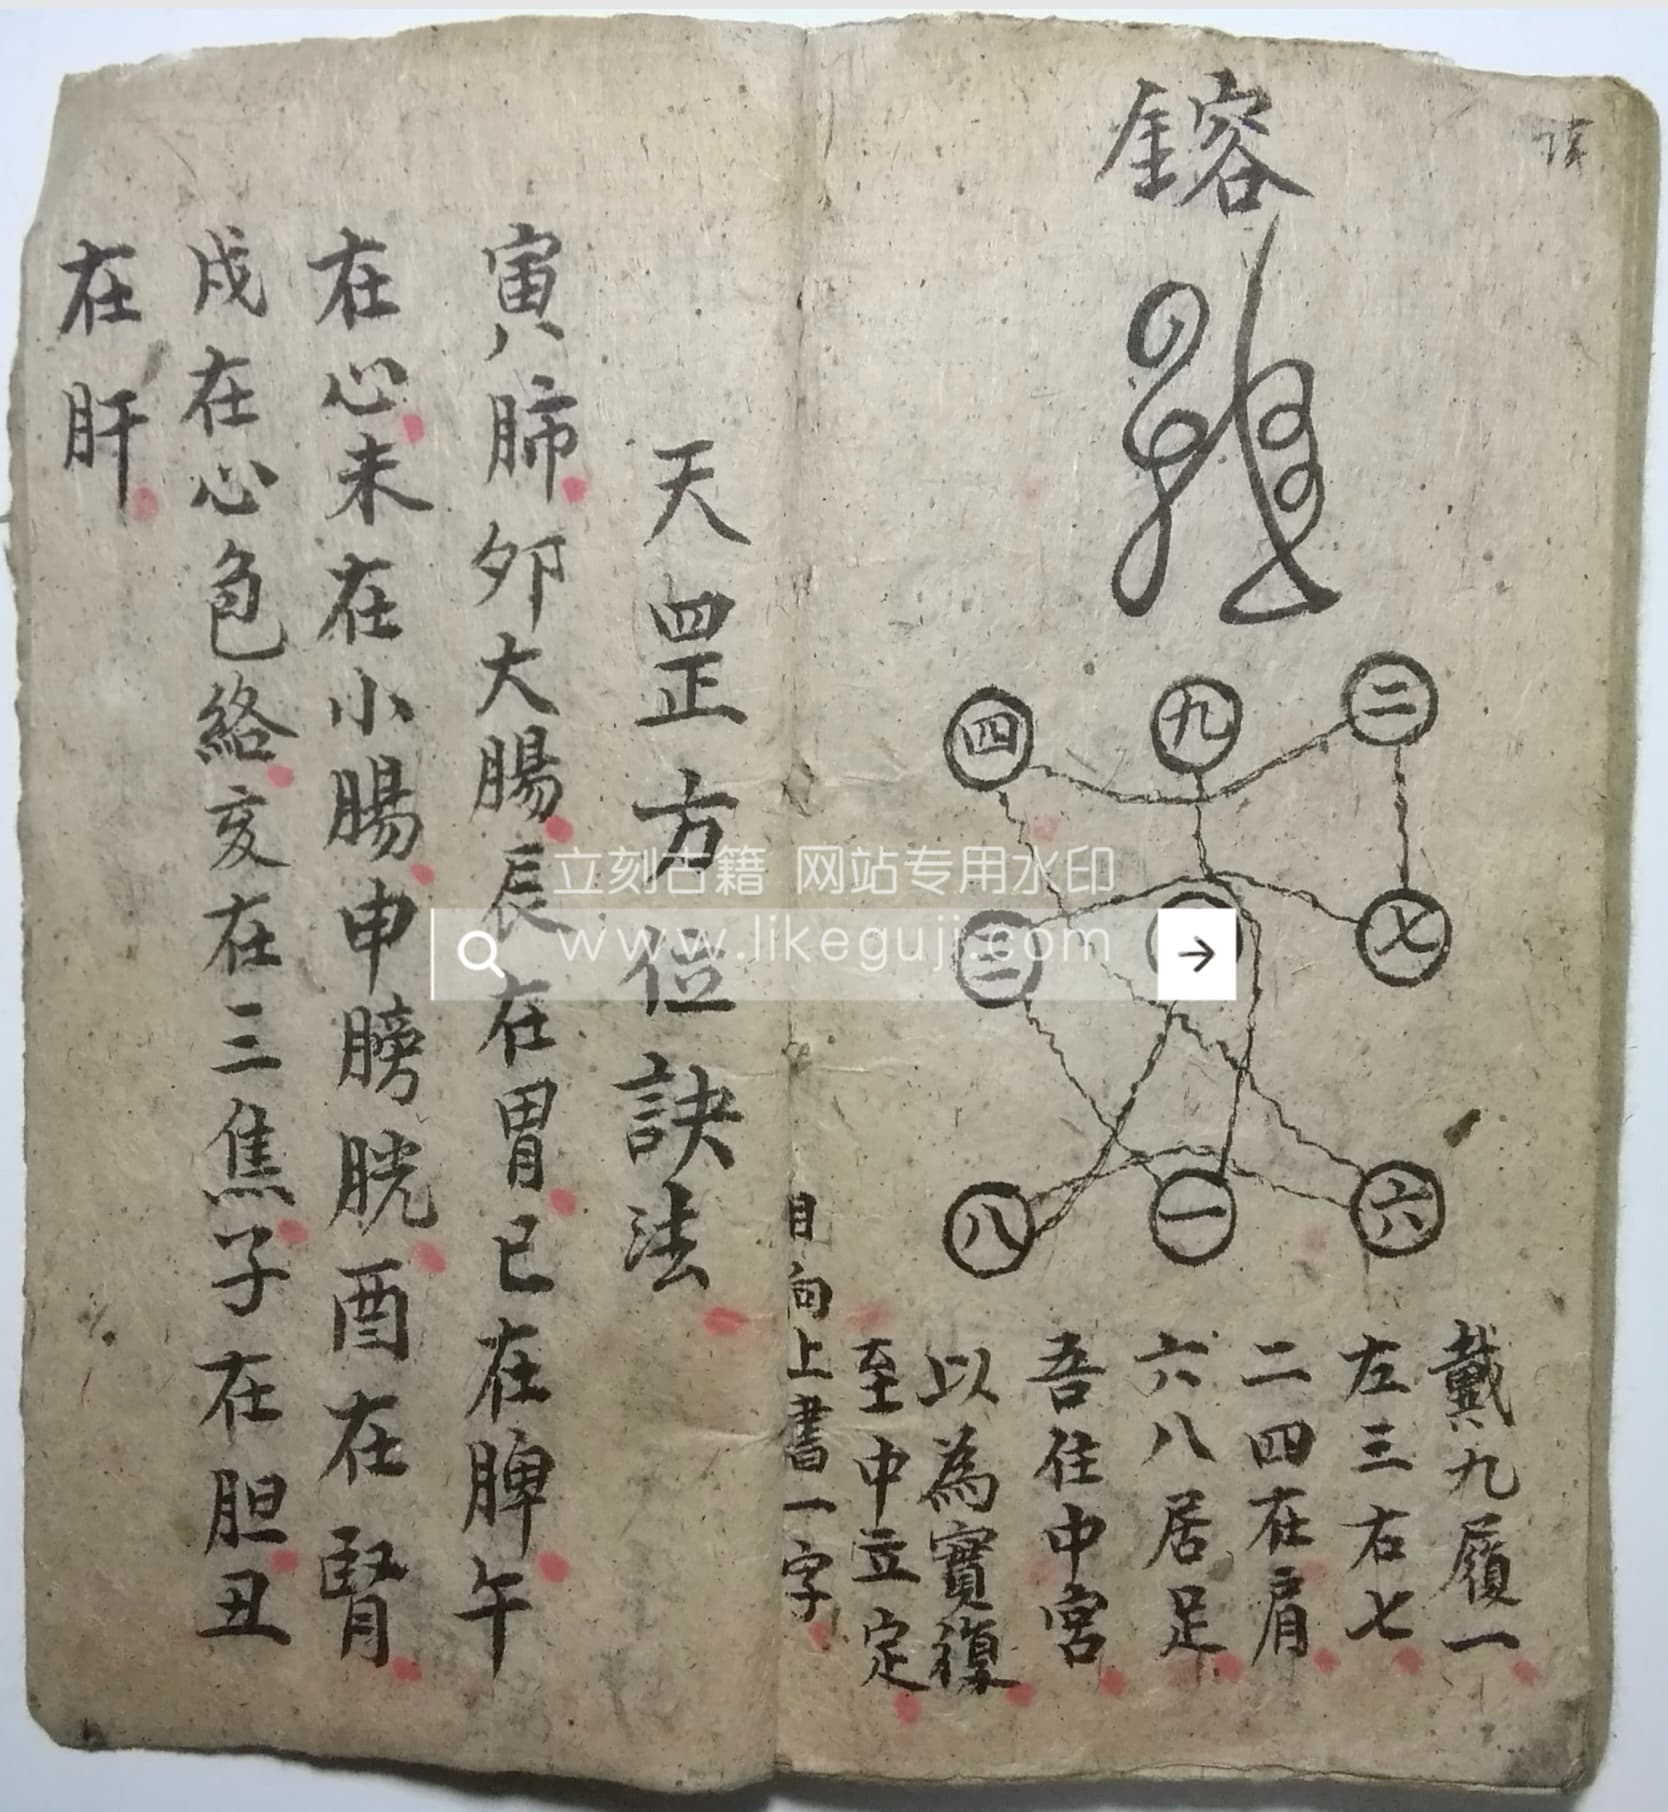 鎔
四 九 二
三 七
八 一 六
戴九履一
左三右七
二四在肩
六八居足
吾住中宮
以為實復
至中立定
目向上書一字
天罡方位訣法
寅肺夘大腸辰在胃巳在脾午
在心未在小腸申膀胱酉在腎
戌在心色絡亥在三焦子在胆丑
在肝
立刻古籍 网站专用水印
www.likeguji.com